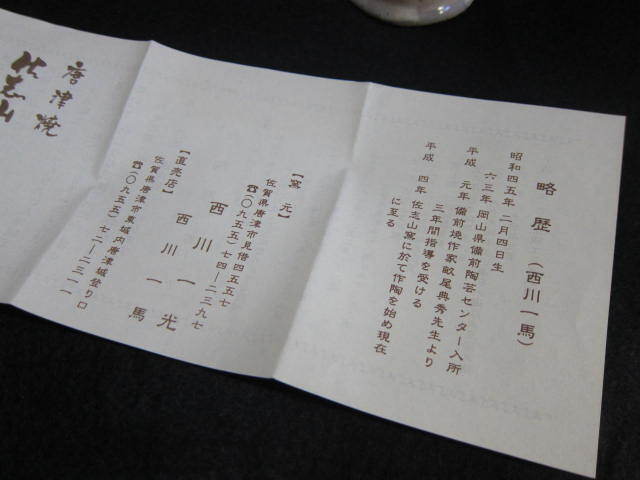 略歴(西川一馬)
昭和四五年二月四日生
六三年岡山県備前陶芸センター入所
平成元年備前焼作家畝尾典秀先生より
三年間指導を受ける
平成四年佐志山窯に於て作陶を始め現在
に至る
【窯元】
佐賀県唐津市見借四五五七
☎(〇九五五)七四―二三九七
西川一光
【直売店】
佐賀県唐津市東城内唐津城登り口
☎(〇九五五)七二―二三一一
西川一馬
唐津焼
佐志山